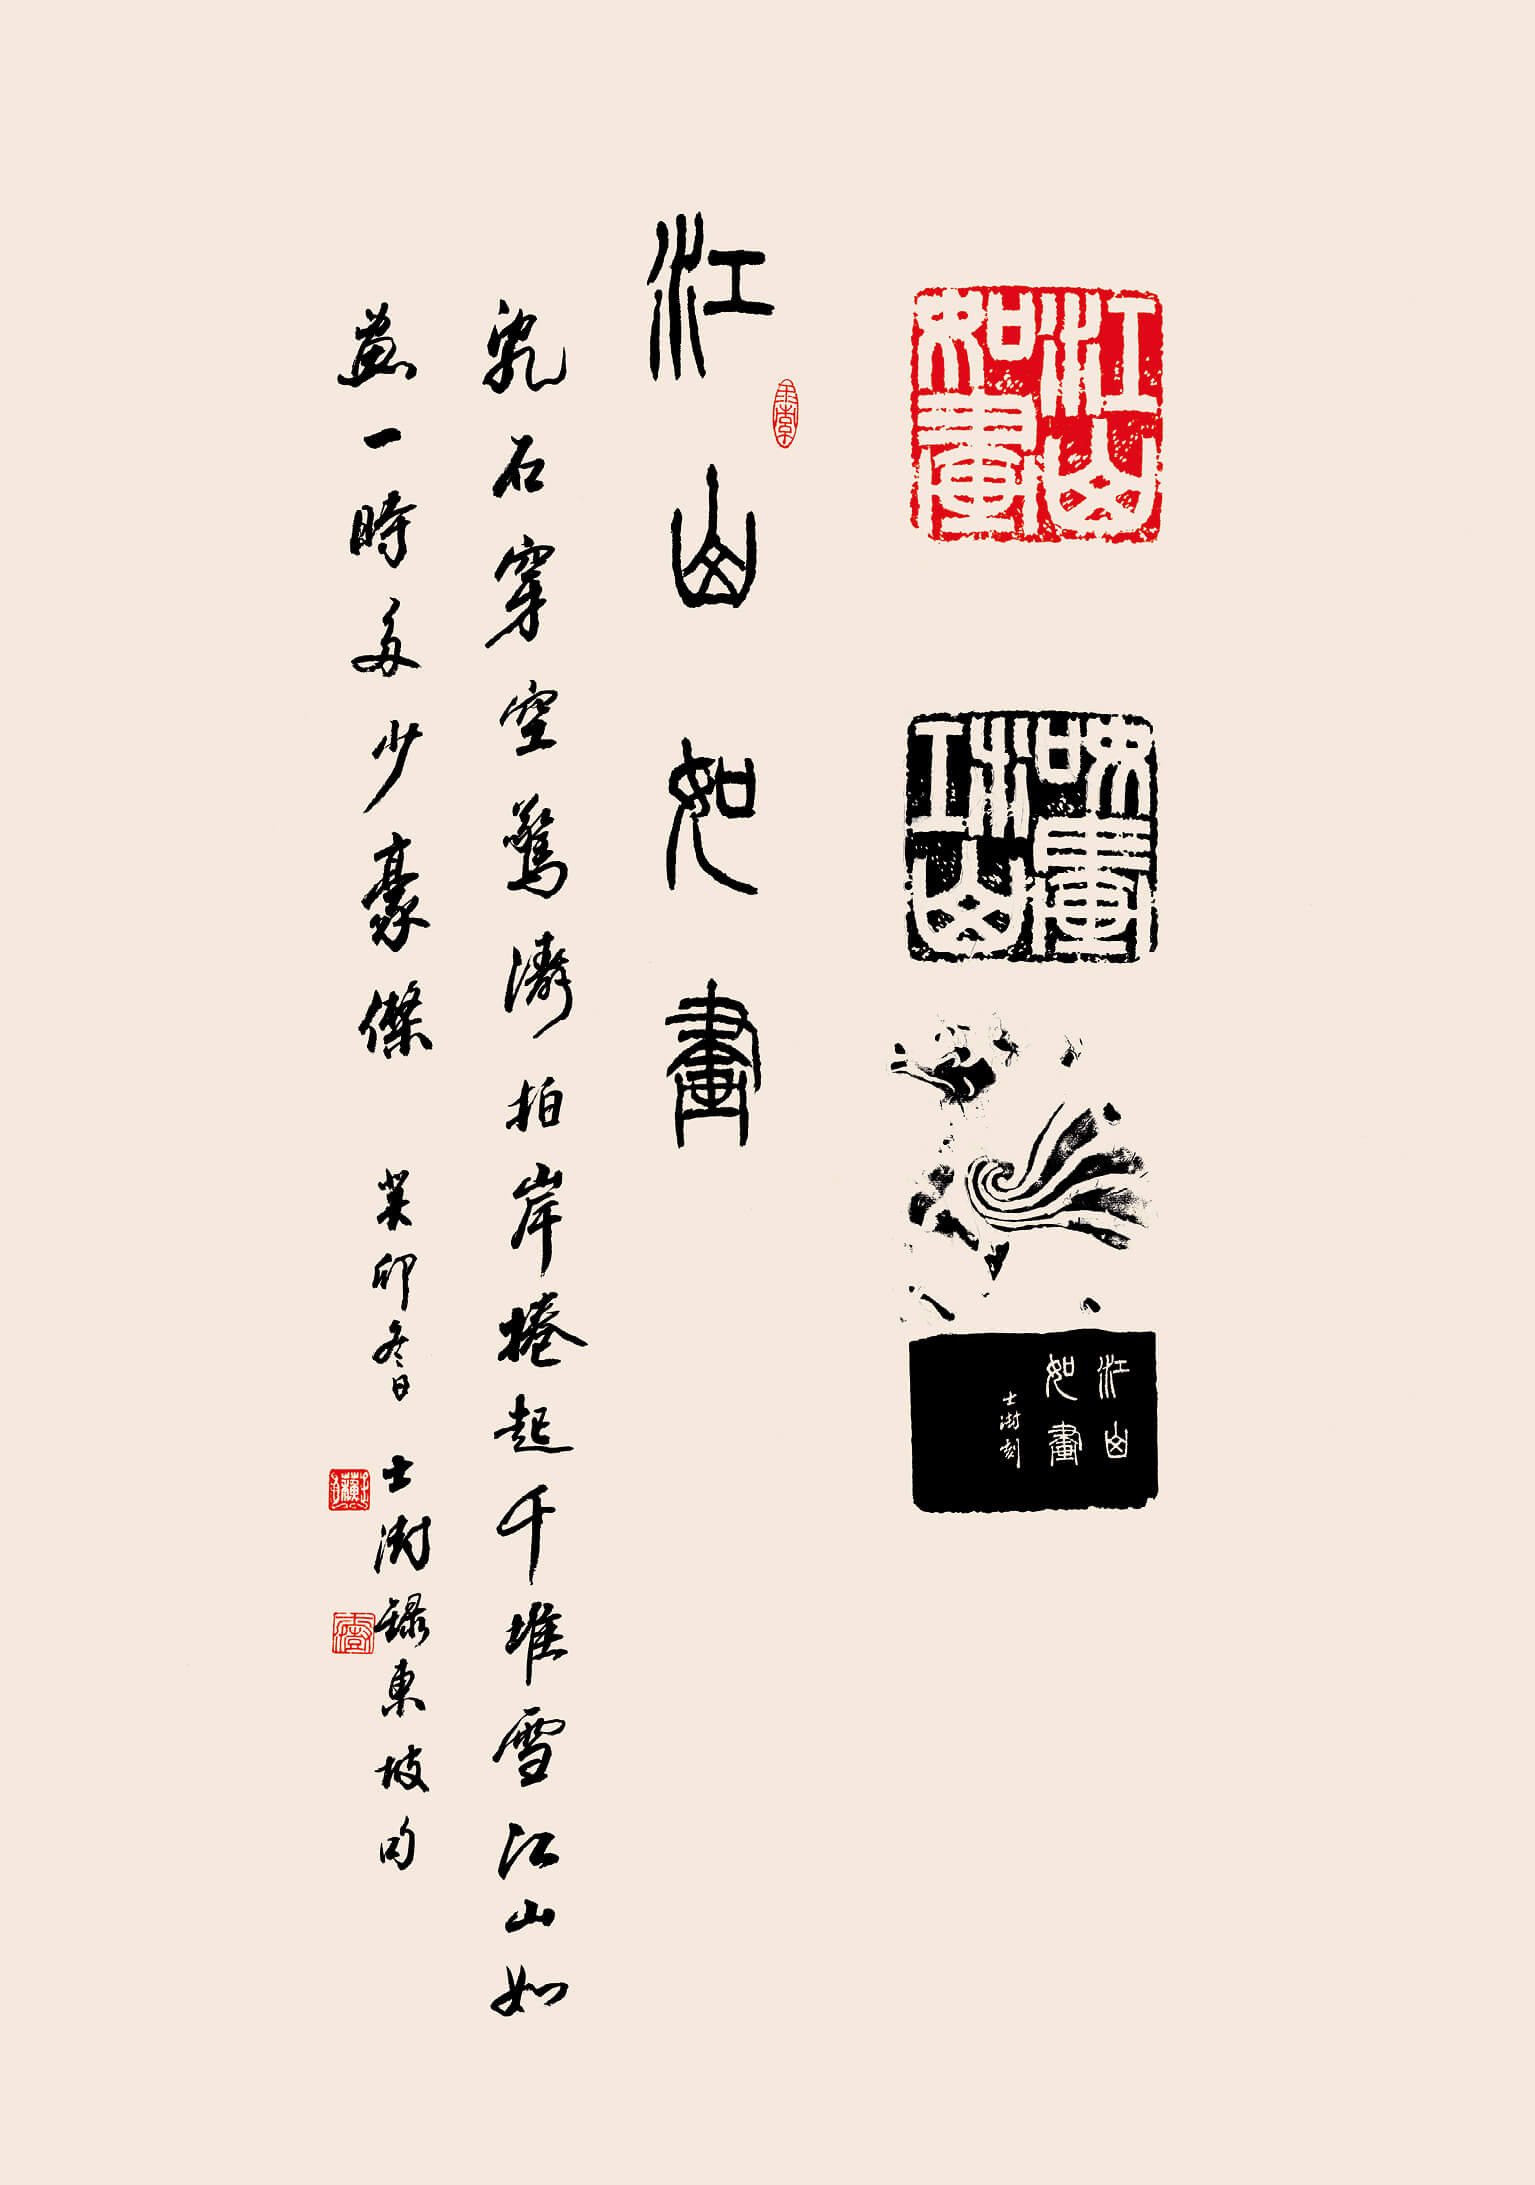 江山如畫
江山如畫
江山如畫
士澍刻
江山如畫
亂石穿空驚濤拍岸捲起千堆雪江山如
畫一時多少豪傑 癸卯春日 士澍錄東坡句